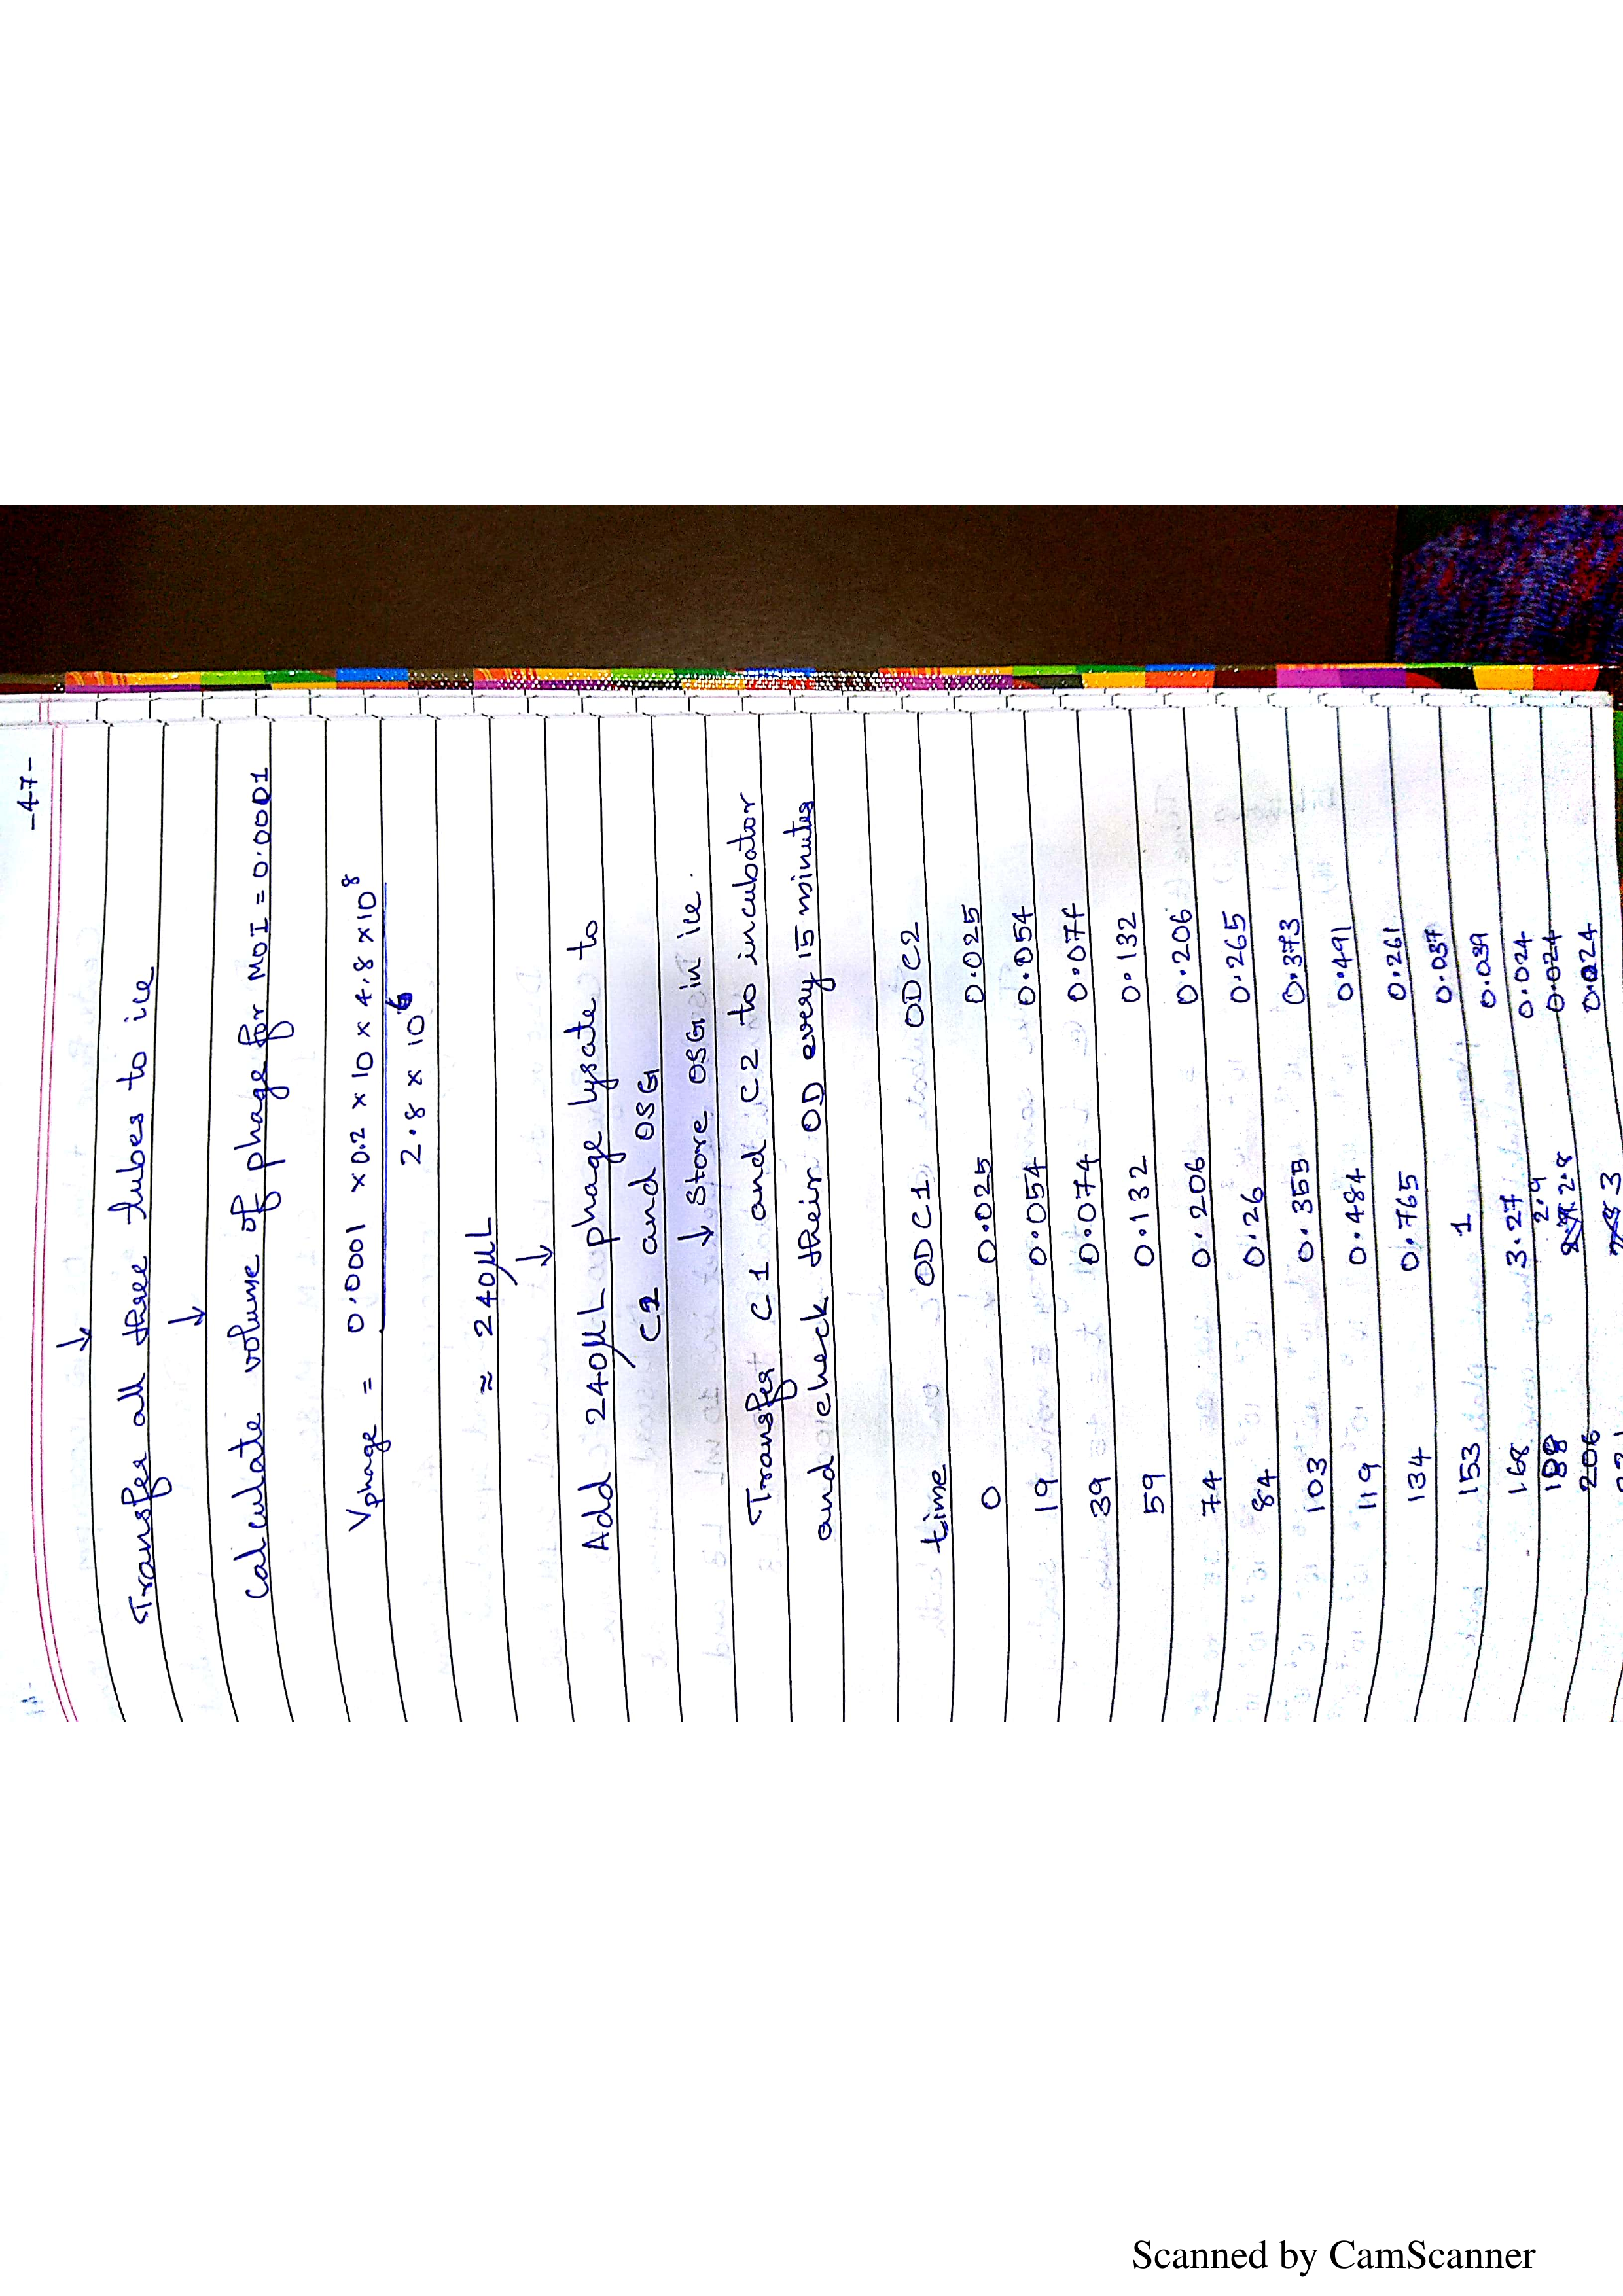 -47-
↓
Transfer all three tubes to ice
↓
Calculate volume of phage for MOI = 0.0001
Vphage = 0.0001 x 0.2 x 10 x 4.8 x 10^8
2.8 x 10^6
≈ 240µL
↓
Add 240µL phage lysate to
C2 and OSG
↓ Store OSG in ice.
Transfer C1 and C2 to incubator
and check their OD every 15 minutes
time OD C1 OD C2
0 0.025 0.025
19 0.054 0.054
39 0.074 0.074
59 0.132 0.132
74 0.206 0.206
84 0.26 0.265
103 0.353 0.373
119 0.484 0.491
134 0.765 0.261
153 1 0.037
168 3.27 0.039
188 2.9 0.024
206 2.8 0.024
3 0.024
Scanned by CamScanner